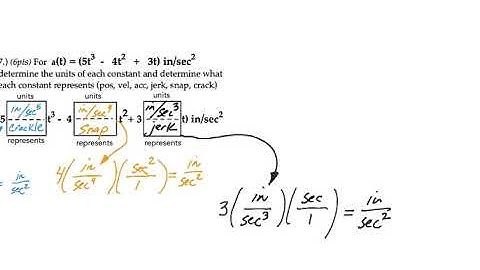 7.) (6pts) For a(t) = (5t³ - 4t² + 3t) in/sec²
determine the units of each constant and determine what
each constant represents (pos, vel, acc, jerk, snap, crack)
units units units
5 in/sec⁵ t³ - 4 in/sec⁴ t² + 3 in/sec³ t) in/sec²
crackle snap jerk
represents represents represents
= in/sec² 4(in/sec⁴)(sec²/1) = in/sec²
3(in/sec³)(sec/1) = in/sec²